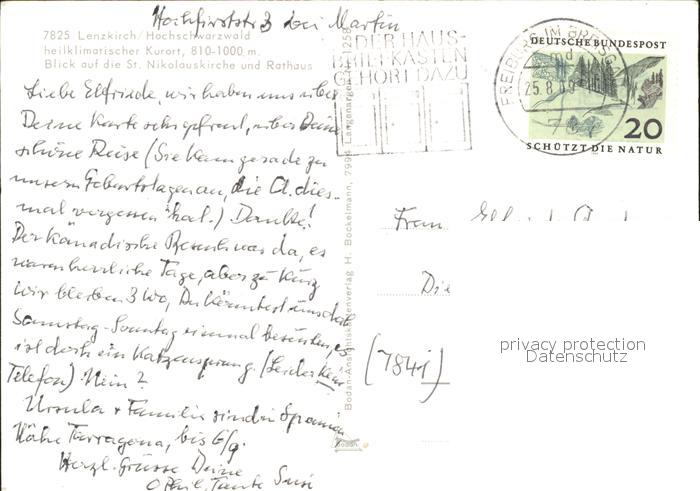 Hochfirststr 3 bei Martin
7825 Lenzkirch/Hochschwarzwald
heilklimatischer Kurort, 810-1000 m.
Blick auf die St. Nikolauskirche und Rathaus
Liebe Elfriede, wir haben uns über
Deine Karte sehr gefreut, über Deine
schöne Reise (Sie kam gerade zu
unsern Geburtstagen an, die A. dies-
mal vergessen hat.) Danke!
Der kanadische Besuch war da, es
waren herrliche Tage, aber zu kurz
Wir bleiben 3 Wo, Du könntest uns doch
Samstag-Sonntag einmal besuchen, es
ist doch ein Katzensprung. (Leider kein
Telefon) Nein?
Ursula + Familie sind in Spanien
Nähe Tarragona, bis 6/9.
Herzl. Grüsse Deine
Tante Susi
Bodan-Ansichtskartenverlag H. Bockelmann, 7994 Langenargen
1258
JEDER HAUS-
BRIEFKASTEN
GEHÖRT DAZU
FREIBURG IM BREISG
md
25.8.69
DEUTSCHE BUNDESPOST
20
SCHÜTZT DIE NATUR
Frau
Die
(7841)
privacy protection
Datenschutz